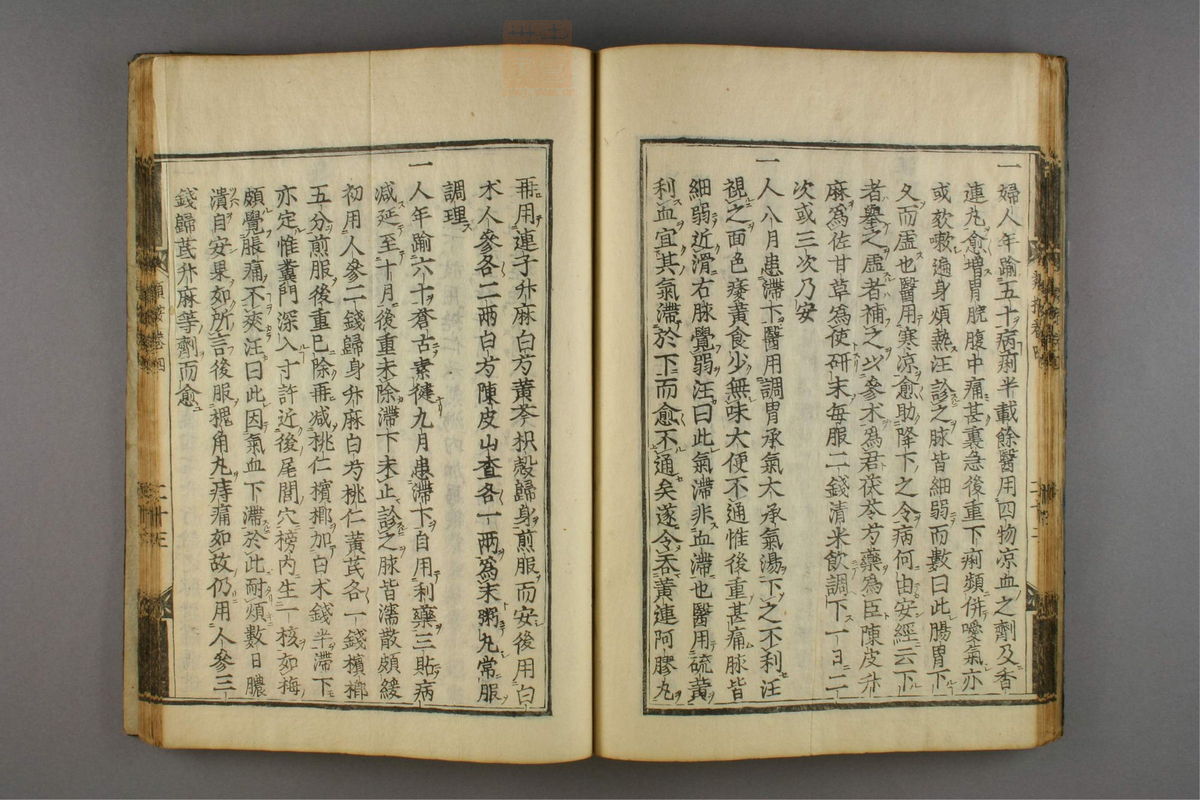 一婦人年踰五十病痢半載餘醫用四物凉血之劑及香
連丸愈増胃脘腹中痛甚裏急後重下痢頻併噯氣亦
或欬嗽遍身煩熱汪診之脉皆細弱而數曰此腸胃下
久而虚也醫用寒凉愈助降下之令病何由安經云下
者擧之虚者補之以參术爲君茯苓芍藥為臣陳皮升
麻為佐甘草為使研末毎服二錢清米飲調下一日二
次或三次乃安
一人八月患滯下醫用調胃承氣大承氣湯下之不利汪
視之面色痿黄食少無味大便不通惟後重甚痛脉皆
細弱近滑右脉覺弱汪曰此氣滯非血滯也醫用硫黄
利血宜其氣滯於下而愈不通矣遂令吞黄連阿膠丸
再用連子升麻白芍黄芩枳殻歸身煎服而安後用白
术人參各二兩白芍陳皮山査各一兩為末粥丸常服
調理
一人年踰六十蒼古素健九月患滯下自用利藥三貼病
减延至十月後重未除滯下未止診之脉皆濡散頗緩
初用人參二錢歸身升麻白芍桃仁黄芪各一錢檳榔
五分煎服後重已除再减桃仁檳榔加白术錢半滯下
亦定惟糞門深入寸許近後尾閭穴榜内生一核如梅
頗覺脹痛不爽汪曰此因氣血下滯於此耐煩數日膿
潰自安果如所言後服槐角丸痔痛如故仍用人參三
錢歸芪升麻等劑而愈